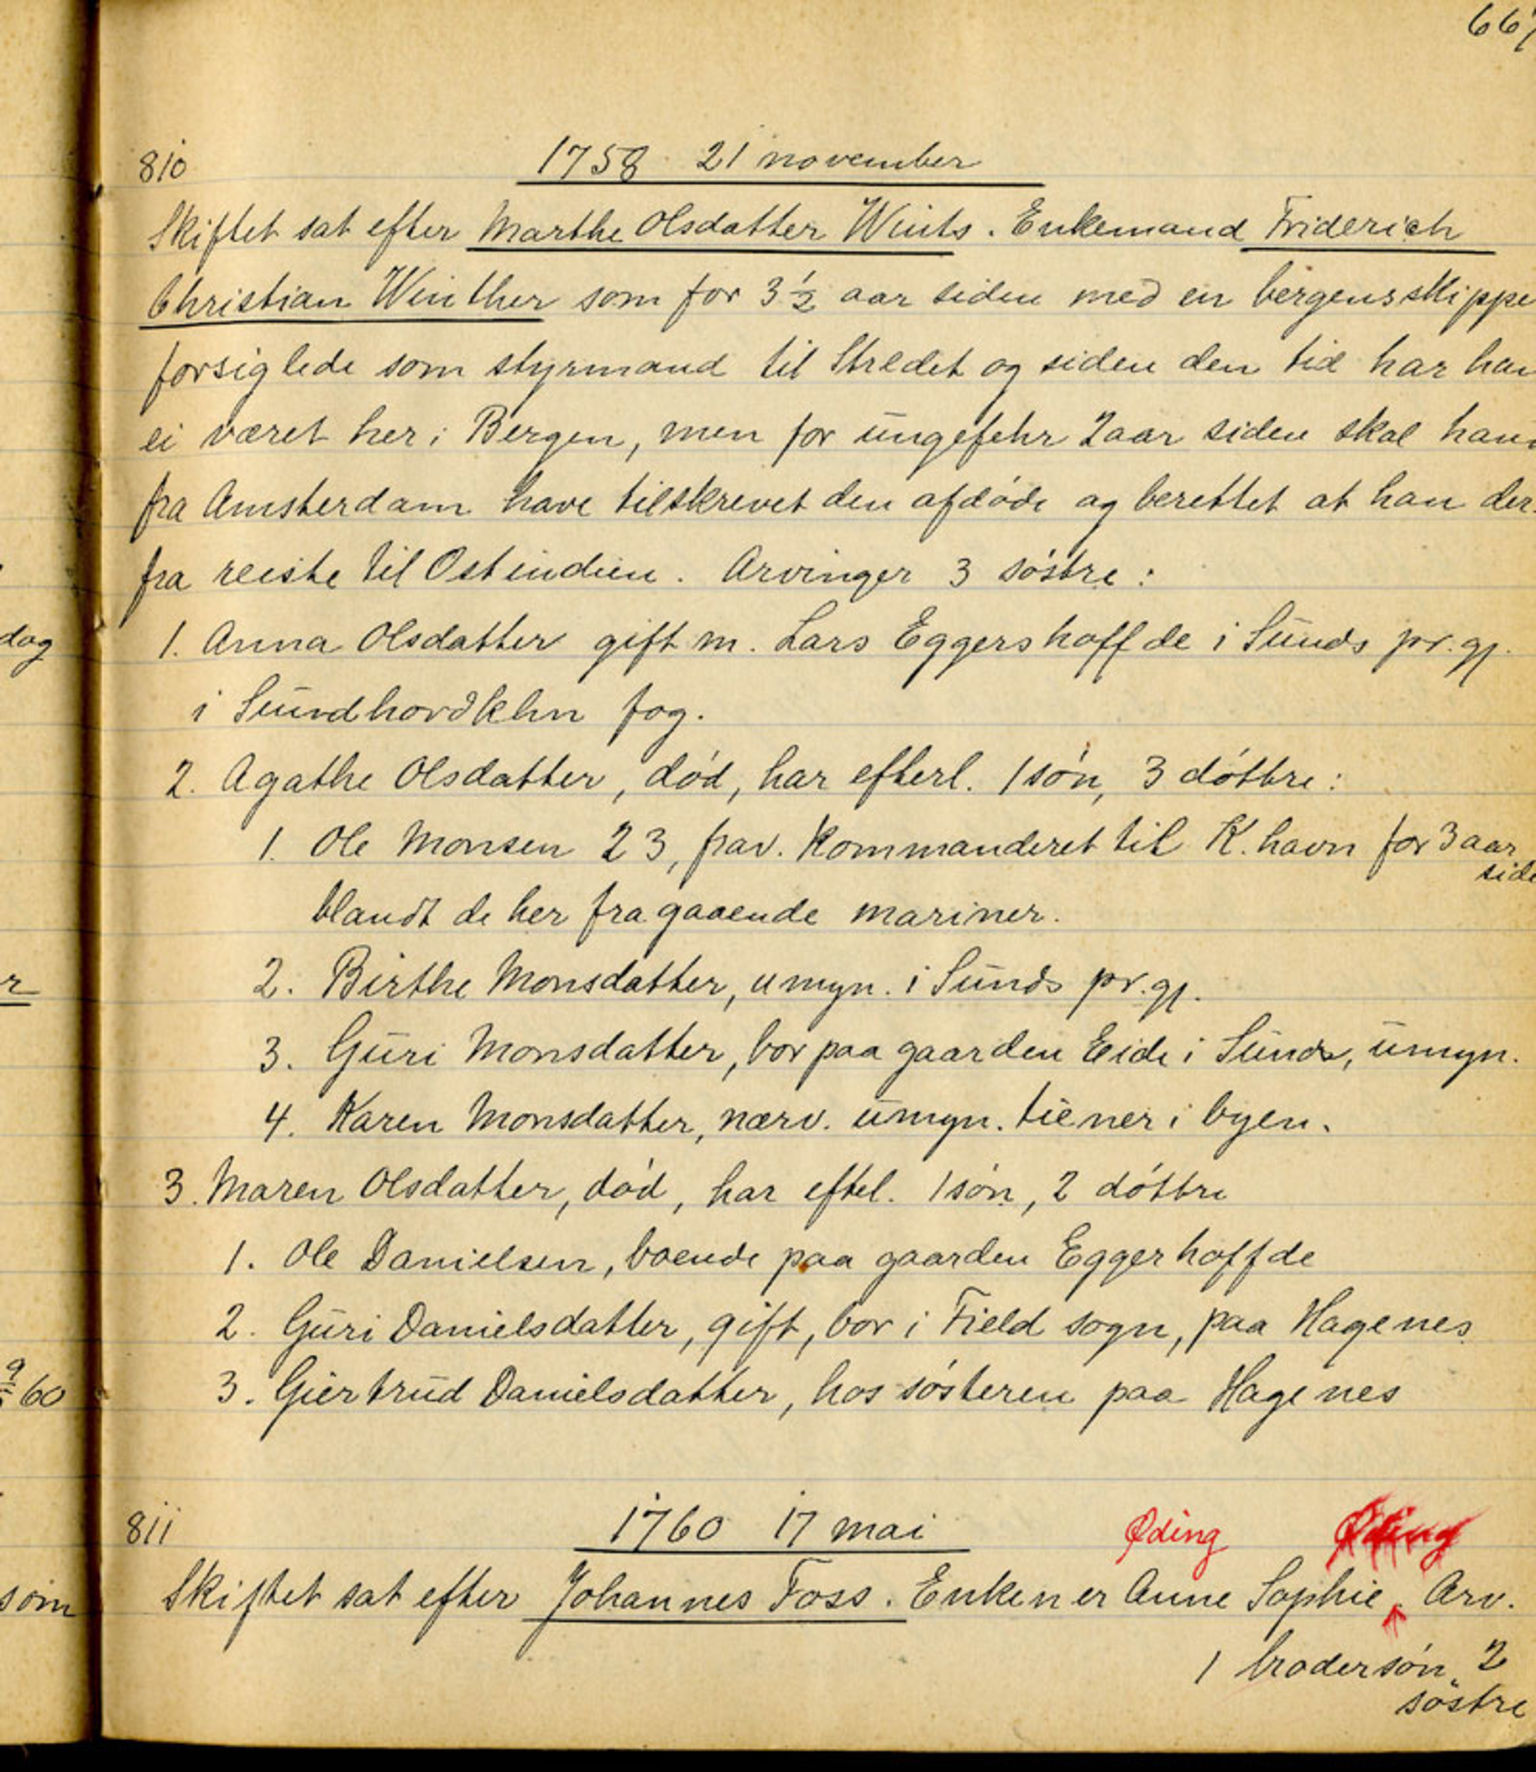 667
810 1758 21 november
Skiftet sat efter Marthe Olsdatter Wints. Enkemand Friderich
Christian Winther som for 3½ aar siden med en bergensskippe
forsiglede som styrmand til Stredet og siden den tid har han
ei været her i Bergen, men for ungefehr 2 aar siden skal han
fra Amsterdam have tilskrevet den afdøde og berettet at han der-
fra reiste til Ostindien. Arvinger 3 søstre:
dag
1. Anna Olsdatter gift m. Lars Eggershoffde i Sunds pr.gj.
i Sundhordlehn fog.
2. Agathe Olsdatter, død, har efterl. 1 søn, 3 døttre:
1. Ole Monsen 23, frav. kommanderet til K.havn for 3 aar
side
blandt de her fra gaaende mariner.
r
2. Birthe Monsdatter, umyn. i Sunds pr.gj.
3. Guri Monsdatter, bor paa gaarden Eide i Sunds, umyn.
4. Karen Monsdatter, nærv. umyn. tiener i byen.
3. Maren Olsdatter, død, har eftel. 1 søn, 2 døttre
1. Ole Danielsen, boende paa gaarden Eggerhoffde
2. Guri Danielsdatter, gift, bor i Field sogn, paa Hagenes
60
3. Giertrud Danielsdatter, hos søsteren paa Hagenes
811 1760 17 mai Øding
som
Skiftet sat efter Johannes Foss. Enken er Anne Sophie Arv.
1 brodersøn 2
søstre